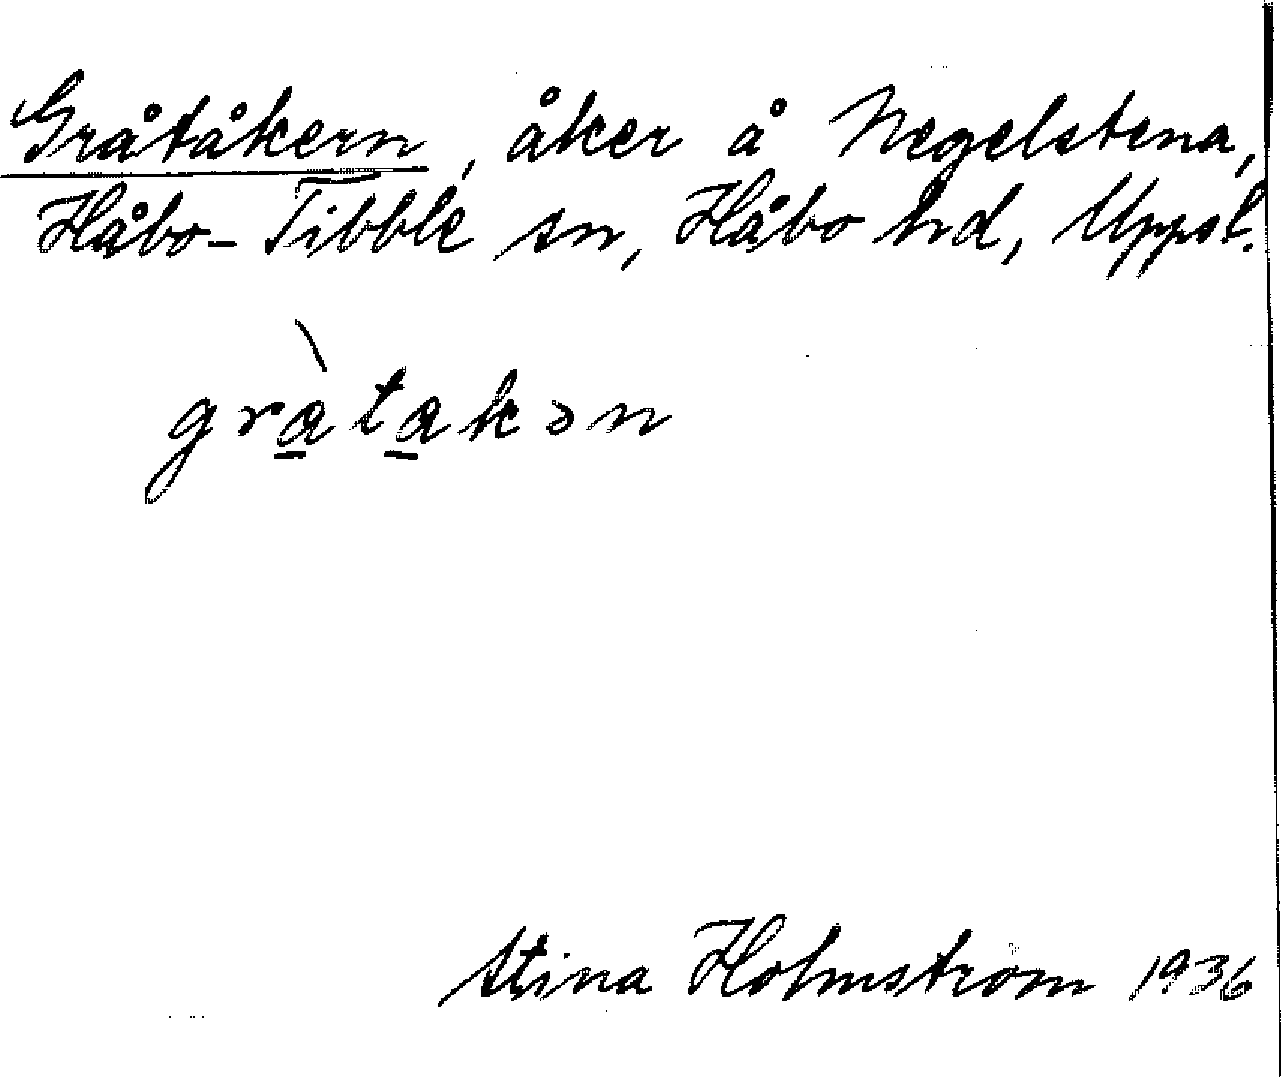 Gråtåkern, åker å Negelstena,
Håbo-Tibble sn, Håbo hd, Uppsl.
gràtakən
Stina Holmström 1936